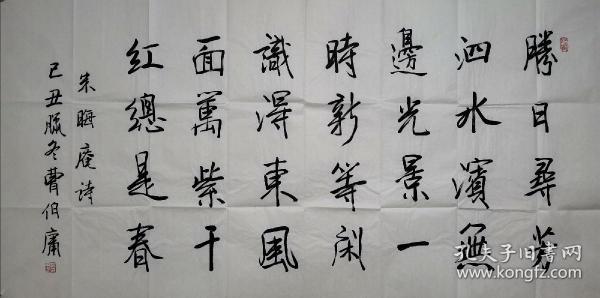 勝日尋芳
泗水濱無
邊光景一
時新等閑
識得東風
面萬紫千
紅總是春
朱晦庵詩
己丑臘冬曹伯庸
孔夫子旧书网
www.kongfz.com